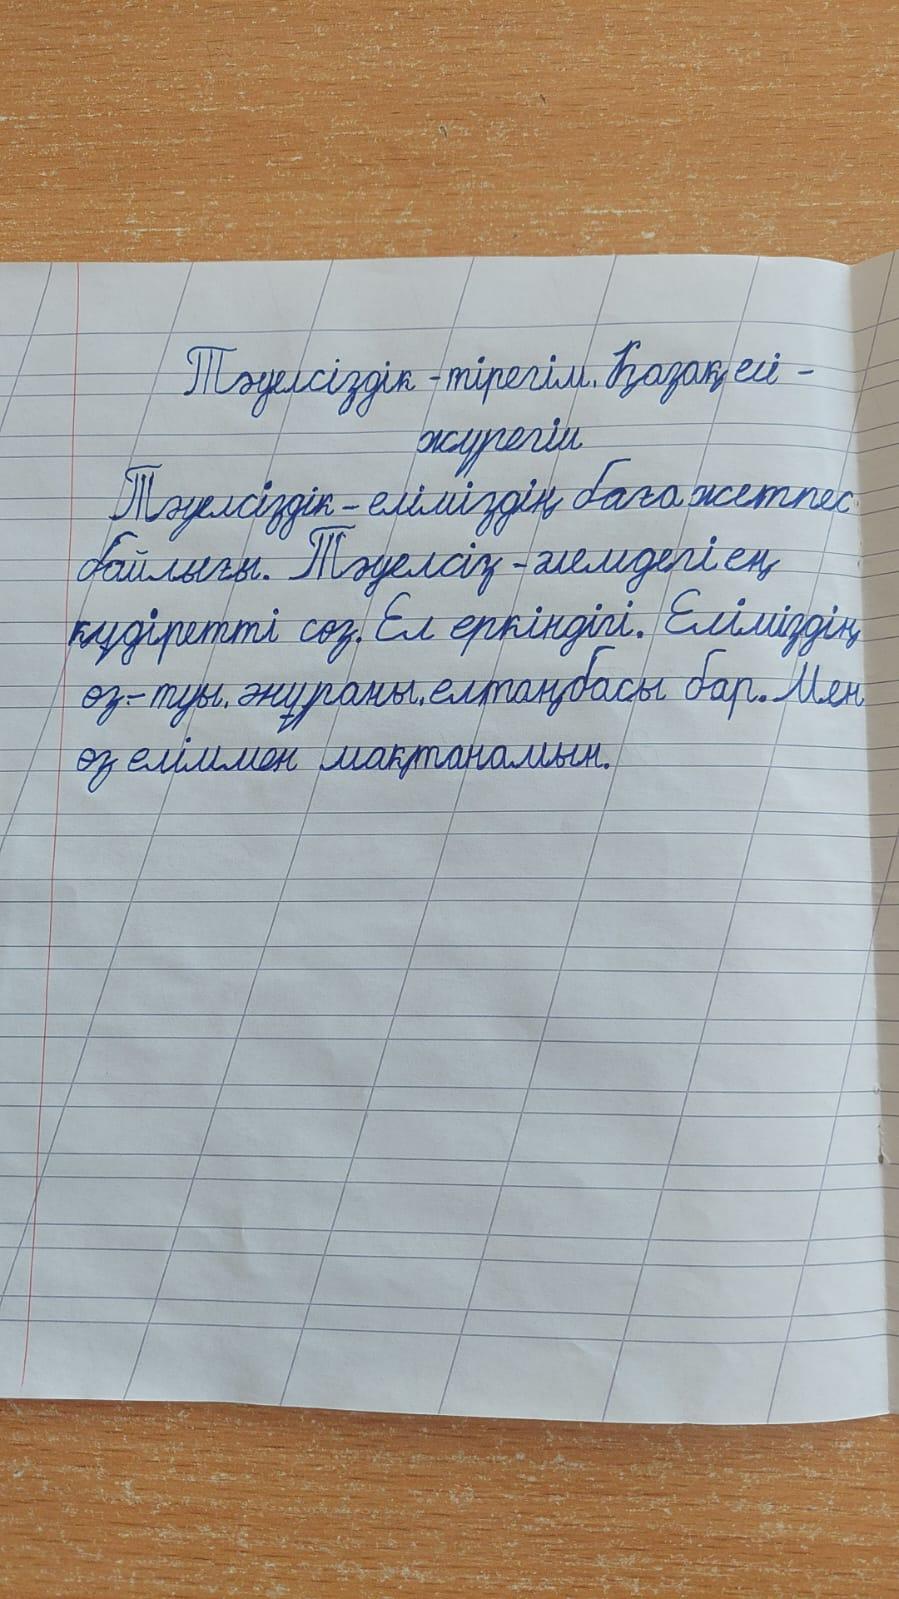 Тәуелсіздік - тірегім. Қазақ елі -
жүрегім
Тәуелсіздік - еліміздің баға жетпес
байлығы. Тәуелсіз - әлемдегі ең
құдіретті сөз. Ел еркіндігі. Еліміздің
өз - туы, әнұраны, елтаңбасы бар. Мен
өз еліммен мақтанамын.